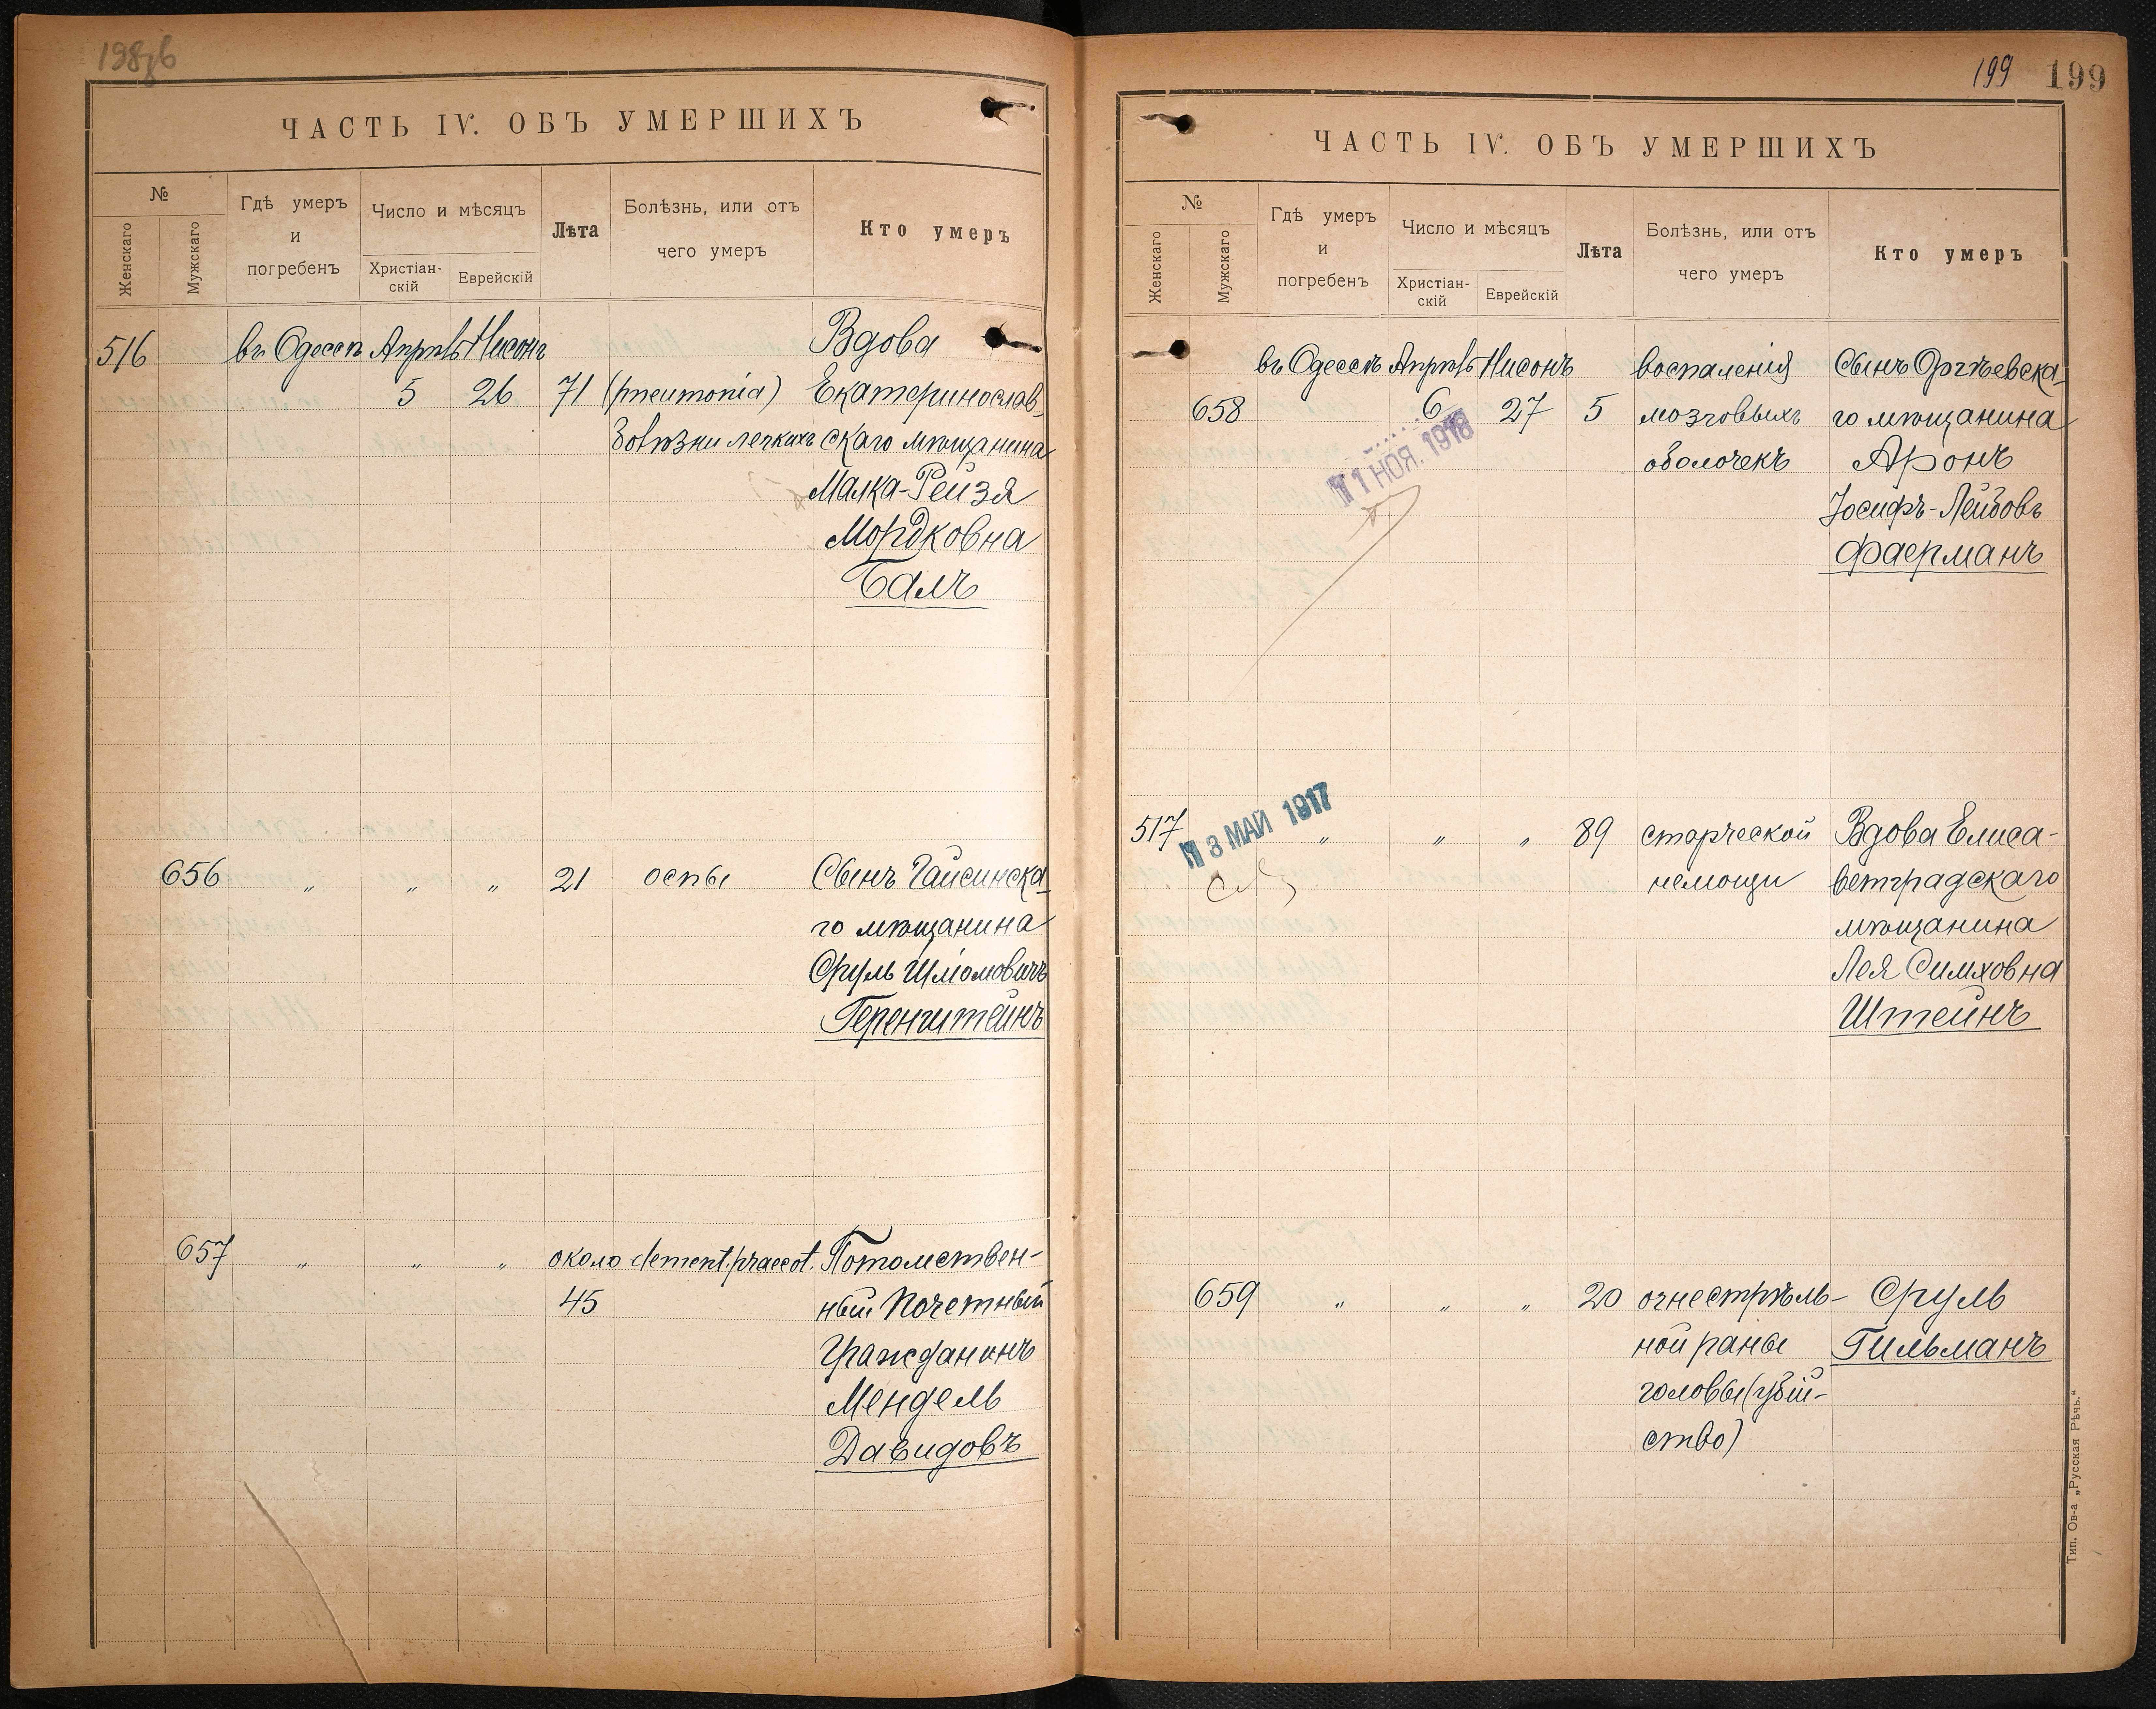 ЧАСТЬ IV. ОБЪ УМЕРШИХЪ
№
Женскаго
Мужскаго
Гдѣ умеръ
и
погребенъ
Число и мѣсяцъ
Христіан-
скій
Еврейскій
Лѣта
Болѣзнь, или отъ
чего умеръ
Кто умеръ
516 въ Одессѣ Апрѣль Нисонъ Вдова
5 26 71 (pneumonia) Екатеринослав-
болѣзни легкихъ скаго мѣщанина
Малка-Рейзя
Мордковна
Балъ
656 " " " 21 оспы Сынъ Гайсинска-
го мѣщанина
Сруль Шломовичъ
Геренштейнъ
657 " " " около dement. praecot. Потомствен-
45 ный Почетный
Гражданинъ
Мендель
Давидовъ
199 199
ЧАСТЬ IV. ОБЪ УМЕРШИХЪ
№
Женскаго
Мужскаго
Гдѣ умеръ
и
погребенъ
Число и мѣсяцъ
Христіан-
скій
Еврейскій
Лѣта
Болѣзнь, или отъ
чего умеръ
Кто умеръ
въ Одессѣ Апрѣль Нисонъ воспаленія Сынъ Оргѣевска-
658 6 27 5 мозговыхъ го мѣщанина
оболочекъ Аронъ
11 НОЯ. 1918
Іосифъ-Лейбовъ
Фаерманъ
517 " " " 89 старческой Вдова Елиса-
13 МАЙ 1917
немощи ветградскаго
мѣщанина
Лея Симховна
Штейнъ
659 " " " 20 огнестрѣль- Сруль
ной раны Гильманъ
головы (убій-
ство)
Тип. Ов-а „Русская Рѣчь.“